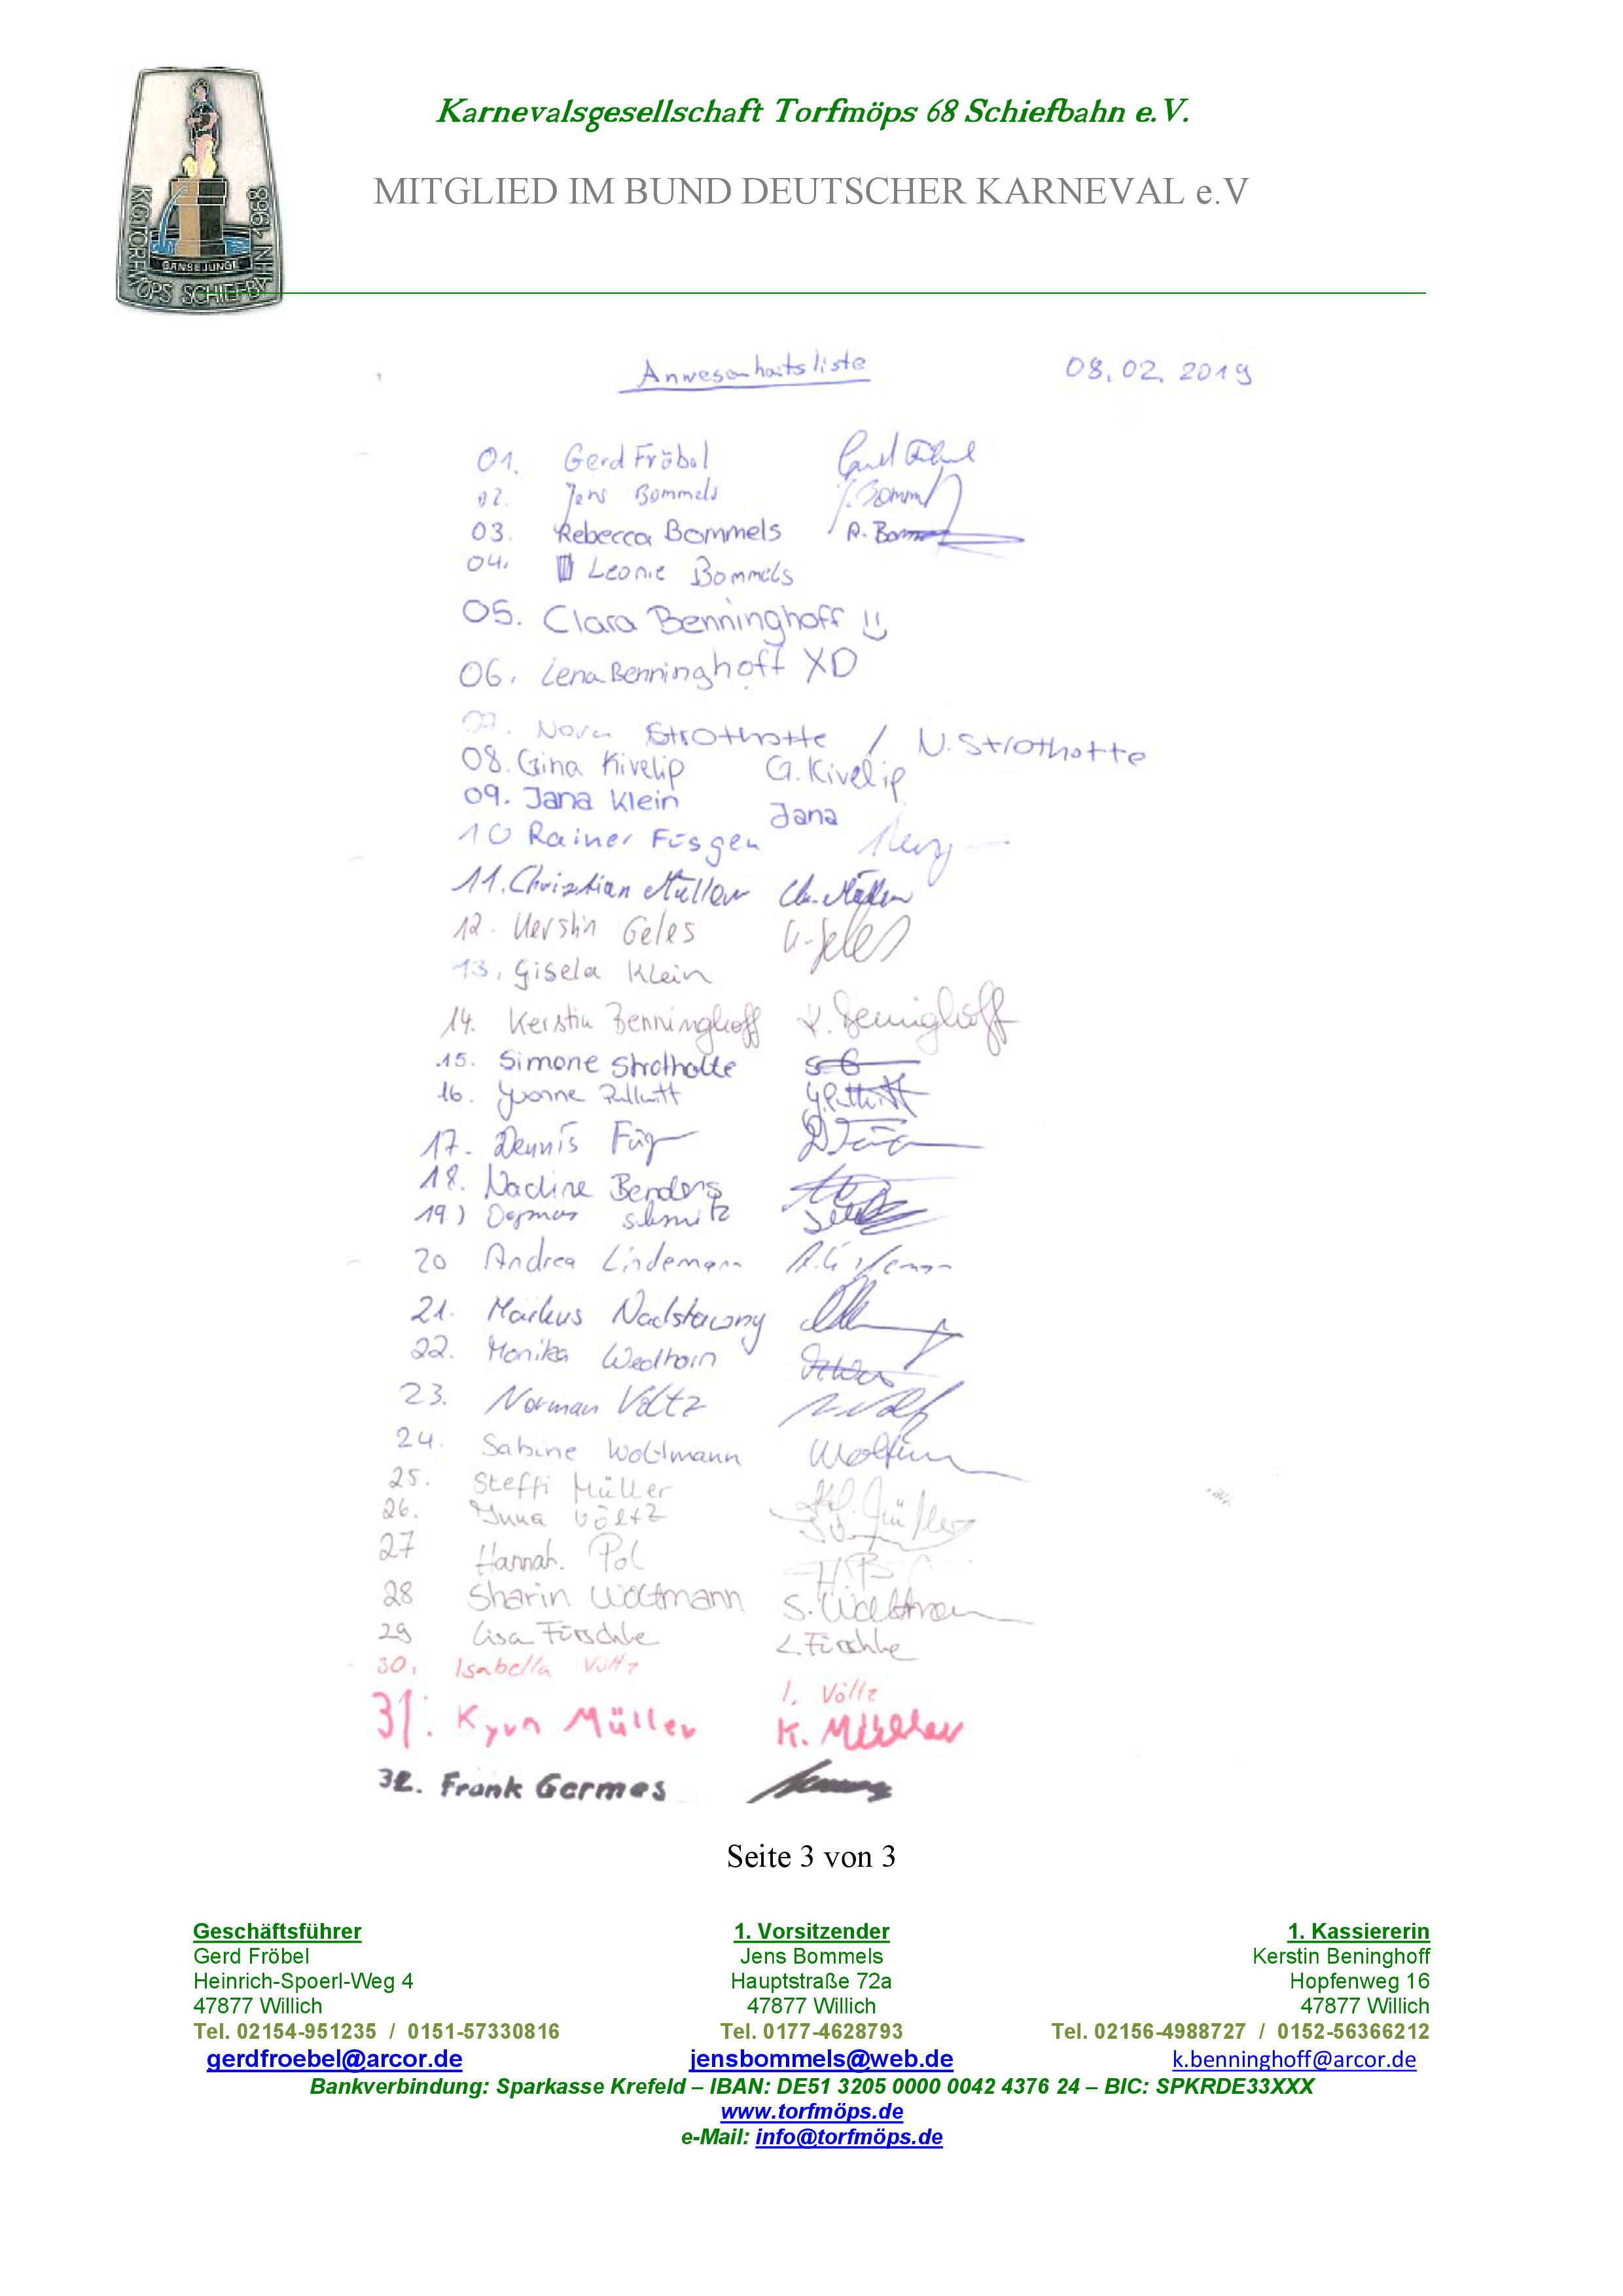 Karnevalsgesellschaft Torfmöps 68 Schiefbahn e.V.
MITGLIED IM BUND DEUTSCHER KARNEVAL e.V
KG TORFMÖPS SCHIEFBAHN 1968
GÄNSEJUNGE
Anwesenheitsliste 08.02.2019
01. Gerd Fröbel
02. Jens Bommels J. Bommels
03. Rebecca Bommels R. Bommels
04. Leonie Bommels
05. Clara Benninghoff
06. Lena Benninghoff XD
07. Nora Strothotte / N. Strothotte
08. Gina Kivelip G. Kivelip
09. Jana Klein Jana
10 Rainer Füsgen
11. Christian Müller Ch. Müller
12. Kerstin Geles K. Geles
13. Gisela Klein
14. Kerstin Benninghoff K. Benninghoff
15. Simone Strothotte
16. Yvonne
17. Dennis
18. Nadine Benders
19.) Dagmar Schmitz
20 Andrea Lindemann A. Lindemann
21. Markus Nadstawny
22. Monika
23. Norman Völtz
24. Sabine Woltmann
25. Steffi Müller St. Müller
26. Inna Völtz
27 Hannah. Pol HP
28 Sharin Woltmann S. Woltmann
29 Lisa Fürschke L. Fürschke
30. Isabella Völtz I. Völtz
31. Kyra Müller K. Müller
32. Frank Germes
Seite 3 von 3
Geschäftsführer 1. Vorsitzender 1. Kassiererin
Gerd Fröbel Jens Bommels Kerstin Beninghoff
Heinrich-Spoerl-Weg 4 Hauptstraße 72a Hopfenweg 16
47877 Willich 47877 Willich 47877 Willich
Tel. 02154-951235 / 0151-57330816 Tel. 0177-4628793 Tel. 02156-4988727 / 0152-56366212
gerdfroebel@arcor.de jensbommels@web.de k.benninghoff@arcor.de
Bankverbindung: Sparkasse Krefeld – IBAN: DE51 3205 0000 0042 4376 24 – BIC: SPKRDE33XXX
www.torfmöps.de
e-Mail: info@torfmöps.de